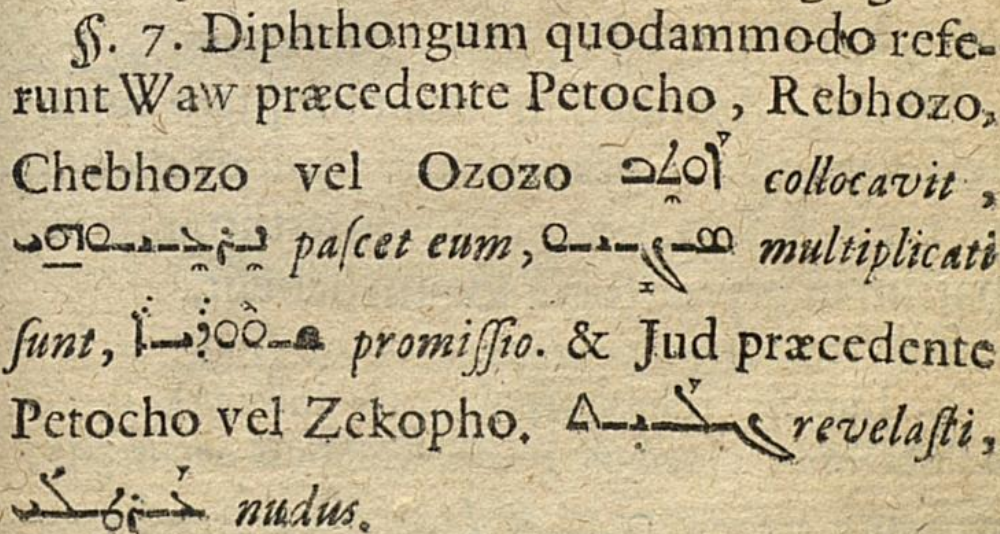 §. 7. Diphthongum quodammodo refe-
runt Waw præcedente Petocho, Rebhozo,
Chebhozo vel Ozozo ܐܰܘܬܶܒ collocavit,
ܢܶܪܥܶܝܘܗܝ paſcet eum, ܣܓܺܝܘ multiplicati
ſunt, ܫܘܘܕܝܐ promiſſio. & Jud præcedente
Petocho vel Zekopho. ܓܠܰܝܬ revelaſti,
ܥܰܪܛܠܳܝ nudus.